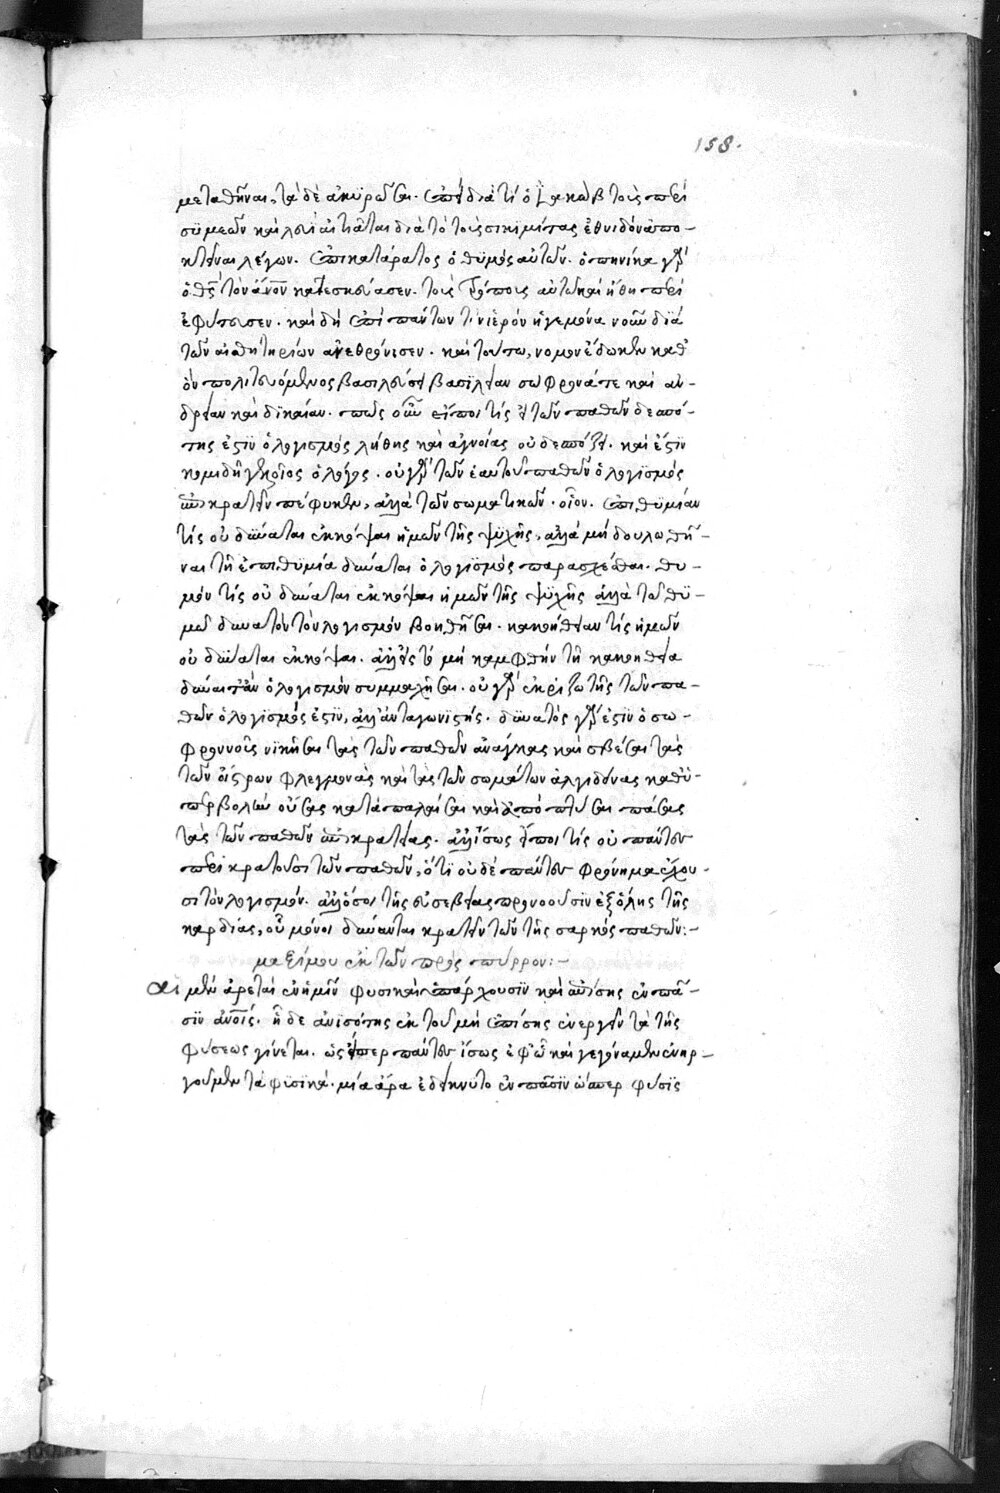 158.
μεταθῆναι, τὰ δὲ ἀκυρῶσαι. ἐπεὶ διατί ὁ Ἰακὼβ τοὺς περὶ
συμεὼν καὶ λευὶ αἰτιᾶται διὰ τὸ τοὺς σικιμίτας ἐθνιδὸν ἀπο-
κτεῖναι λέγων. ἐπικατάρατος ὁ θυμὸς αὐτῶν. ὁπηνίκα γὰρ
ὁ θς τὸν ἄνον κατεσκεύασεν. τοὺς τρόπους αὐτοῦ καὶ ἤθη περι
εφύτευσεν. καὶ δὴ ἐπὶ πάντων τὸν ἱερὸν ἡγεμόνα νοῦν διὰ
τῶν αἰσθητηρίων ἀνεθρόνισεν. καὶ τούτω, νόμον ἔδωκεν καθ'
ὃν πολιτευόμενος βασιλεύσει βασιλείαν σώφρονά τε καὶ ἀν-
δρείαν καὶ δικαίαν. πῶς οὖν εἴποι τίς εἰ τῶν παθῶν δεσπό-
της ἐστὶν ὁ λογισμὸς λήθης καὶ ἀγνοίας οὐ δεσπόζει. καὶ ἔστιν
κομιδῆ γελοῖος ὁ λόγος. οὐ γὰρ τῶν ἑαυτοῦ παθῶν ὁ λογισμὸς
ἐπικρατεῖν πέφυκεν, ἀλλὰ τῶν σωματικῶν. οἷον. ἐπιθυμίαν
τίς οὐ δύναται ἐκκόψαι ἡμῶν τῆς ψυχῆς, ἀλλὰ μὴ δουλωθῆ-
ναι τῆ ἐπιθυμία δύναται ὁ λογισμὸς παρασχέσθαι. θυ-
μόν τίς οὐ δύναται ἐκκόψαι ἡμῶν τῆς ψυχῆς ἀλλὰ τοῦ θυ-
μοῦ δυνατὸν τὸν λογισμὸν βοηθῆσαι. κακοήθειαν τίς ἡμῶν
οὐ δύναται ἐκκόψαι. ἀλλ' εἰς τὸ μὴ καμφθῆν τῆ κακοηθεία
δύναιτ' ἂν ὁ λογισμὸν συμμαχῆσαι. οὐ γὰρ ἐκριζωτὴς τῶν πα-
θῶν ὁ λογισμός ἐστιν, ἀλλ' ἀνταγωνιστής. δυνατὸς γάρ ἐστιν ὁ σω-
φρονοῦς νικῆσαι τὰς τῶν παθῶν ἀνάγκας καὶ σβέσαι τὰς
τῶν οἴστρων φλεγμονὰς καὶ τὰς τῶν σωμάτων ἀλγιδόνας καθ' ὑ-
περβολὴν οὔσας καταπαλαῖσαι καὶ ἀποπτύσαι πάσας
τὰς τῶν παθῶν ἐπικρατείας. ἀλλ' ἴσως εἴποι τίς οὐ πάντες
περικρατοῦσι τῶν παθῶν, ὅτι οὐδὲ πάντες φρόνημα ἔχου-
σι τὸν λογισμόν. ἀλλ' ὅσοι τῆς εὐσεβείας προνοοῦσιν ἐξ ὅλης τῆς
καρδίας, οὗ μόνοι δύνανται κρατεῖν τῶν τῆς σαρκὸς παθῶν:-
μαξίμου ἐκ τῶν πρὸς πύρρον:-
Αἱ μὲν ἀρεταὶ ἐν ἡμῖν φυσικαὶ ὑπάρχουσιν καὶ ἐπίσης ἐν πᾶ-
σιν ἀνοις. ἡ δὲ ἀνισότης ἐκ τοῦ μὴ ἐπίσης ἐνεργεῖν τὰ τῆς
φύσεως γίνεται. ὡς εἴπερ πάντες ἴσως ἐφ' ὧ καὶ γεγόναμεν ἐνηρ-
γοῦμεν τὰ φυσικά. μία ἄρα ἐδείκνυτο ἐν πᾶσιν ὥσπερ φύσις